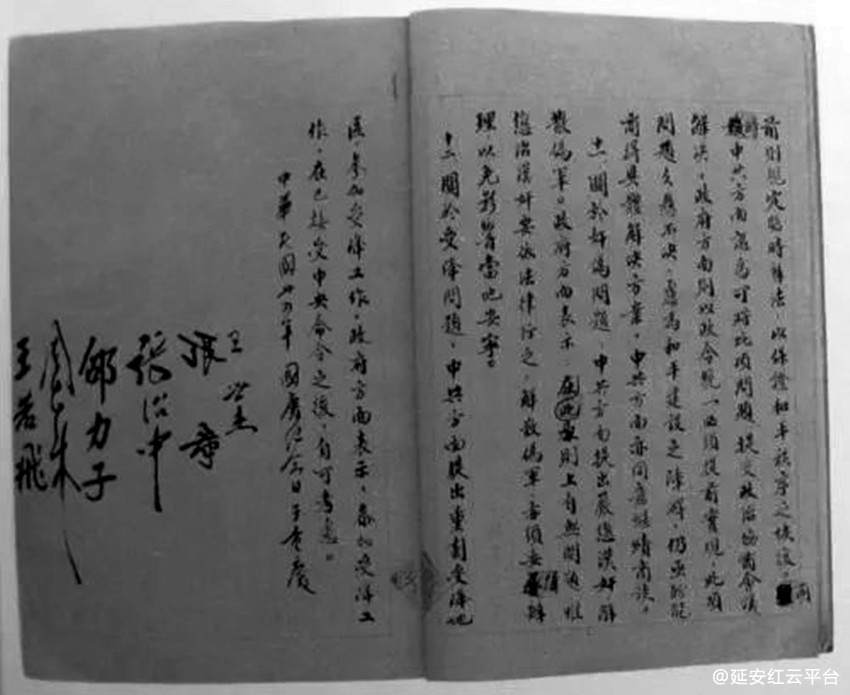 前則規定臨時辦法,以保證和平秩序之恢復。同
時中共方面認為可將此項問題提交政治協商會議
解決。政府方面則以政令統一必須提前實現,此項
問題久懸不決,慮為和平建設之障碍,仍亟盼能
商得具體解決方案。中共方面亦同意繼續商談。
十一、關於奸偽問題,中共方面提出嚴懲漢奸解
散偽軍。政府方面表示,在此原則上自無問題惟
懲治漢奸要依法律行之,解散偽軍亦須妥慎辦
理以免影響當地安寧。
十二、關於受降問題,中共方面提出重劃受降地
區,參加受降工作,政府方面表示,參加受降工
作,在已接受中央命令之後,自可考慮。
中華民國卅四年國慶紀念日于重慶
王世杰
張羣
張治中
邵力子
周恩來
王若飛
@延安红云平台